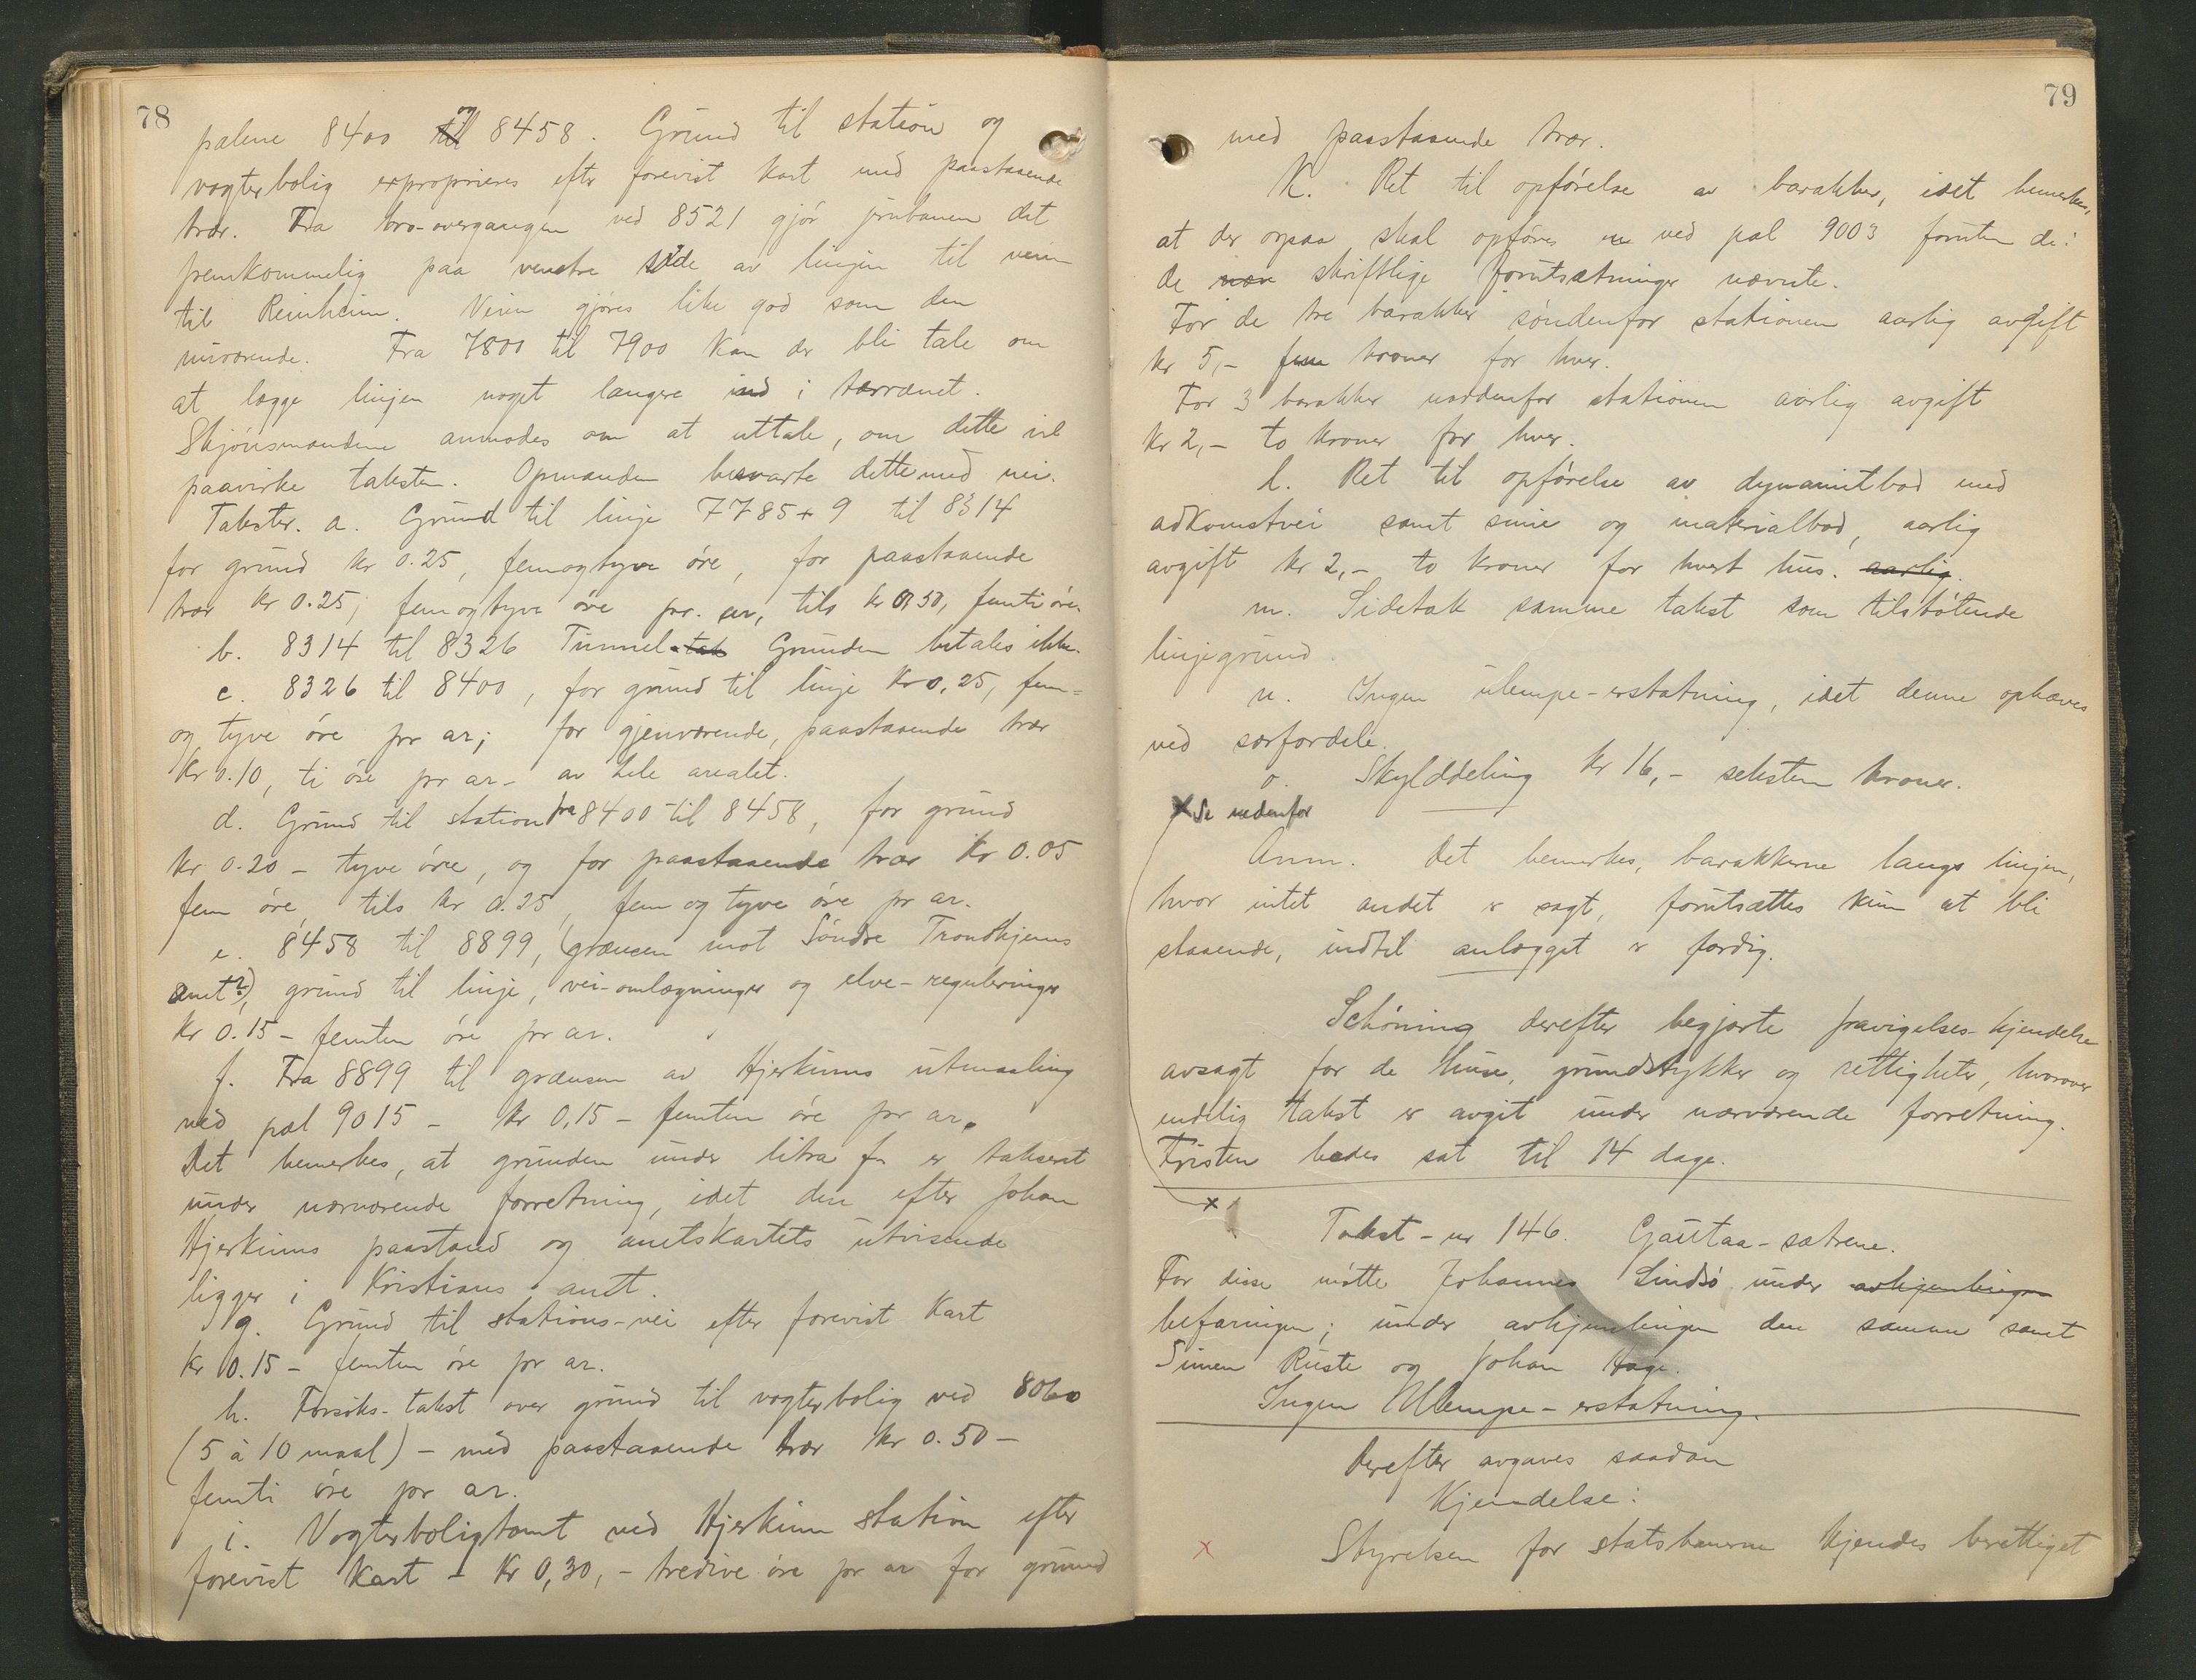 78
pælene 8400 og 8458. Grund til station og
vogterbolig exproprieres efter forevist kart med paastaaende
trær. Fra bro-overgangen ved 8521 gjör jernbanen det
fremkommelig paa venstre side av linjen til veien
til Reinheim. Veien gjöres like god som den
nuværende. Fra 7800 til 7900 kan der bli tale om
at lægge linjen noget længere ind i tærrænet.
Skjönsmændene anmodes om at uttale, om dette vil
paavirke taksten. Opmanden besvarte dette med nei.
Takster. a. Grund til linje 7785+9 til 8314
for grund kr 0.25, femogtyve öre, for paastaaende
trær kr 0.25, femogtyve öre pr. ar, tils kr 0.50, femti öre.
b. 8314 til 8326 Tunnel. tak Grunden betales ikke.
c. 8326 til 8400, for grund til linje kr 0,25, fem-
og tyve öre pr ar; for gjenværende, paastaaende trær
kr 0.10, ti öre pr ar - av hele arealet.
d. Grund til station fra 8400 til 8458, for grund
kr 0.20 - tyve öre, og for paastaaende trær kr 0.05
fem öre, tils kr 0.25, fem og tyve öre pr ar.
e. 8458 til 8899, (grænsen mot Söndre Trondhjems
amt?), grund til linje, vei-omlægninger og elve-reguleringer
kr 0.15 - femten öre pr ar.
f. Fra 8899 til grænsen av Hjerkinns utmaaling
ved pæl 9015 - kr 0,15 - femten öre pr ar.
Det bemerkes, at grunden under litra f er takseret
under nærværende forretning, idet den efter Johan
Hjerkinns paastand og amtskartets utvisende
ligger i Kristians amt.
g. Grund til stations-vei efter forevist kart
kr 0.15 - femten öre pr ar.
h. Forsöks-takst over grund til vogterbolig ved 8060
(5 à 10 maal) - med paastaaende trær kr 0.50 -
femti öre pr ar.
i. Vogterboligtomt ved Hjerkinn station efter
forevist kart - kr 0,30, - tredive öre pr ar for grund
79
med paastaaende trær.
K. Ret til opförelse av barakker, idet bemerkes,
at der ogsaa skal opföres en ved pæl 9003 foruten de i
de næv skriftlige forutsætninger nævnte.
For de tre barakker söndenfor stationen aarlig avgift
kr 5,- fem kroner for hver.
For 3 barakker nordenfor stationen aarlig avgift
kr 2,- to kroner for hver.
l. Ret til opförelse av dynamitbod med
adkomstvei samt smie og materialbod, aarlig
avgift kr 2,- to kroner for hvert hus. aarlig.
m. Sidetak samme takst som tilstötende
linjegrund.
n. Ingen ulempe-erstatning, idet denne ophæves
ved særfordele.
o. Skylddeling kr 16,- seksten kroner.
x Se nedenfor
Anm. Det bemerkes, barakkerne langs linjen,
hvor intet andet er sagt, forutsættes kun at bli
staaende, indtil anlægget er færdig.
Schöning derefter begjærte fravigelses-kjendelse
avsagt for de huse, grundstykker og rettigheter, hvorover
endelig takst er avgit under nærværende forretning.
Fristen bedes sat til 14 dage.
x
Takst-nr 146. Gautaa-sætrene.
For disse mötte Johannes Lindsö under avhjemlingen
befaringen; under avhjemlingen den samme samt
Simen Ruste og Johan Hage.
Ingen Ulempe-erstatning.
Derefter avgaves saadan
Kjendelse:
x Styrelsen for statsbanerne kjendes berettiget